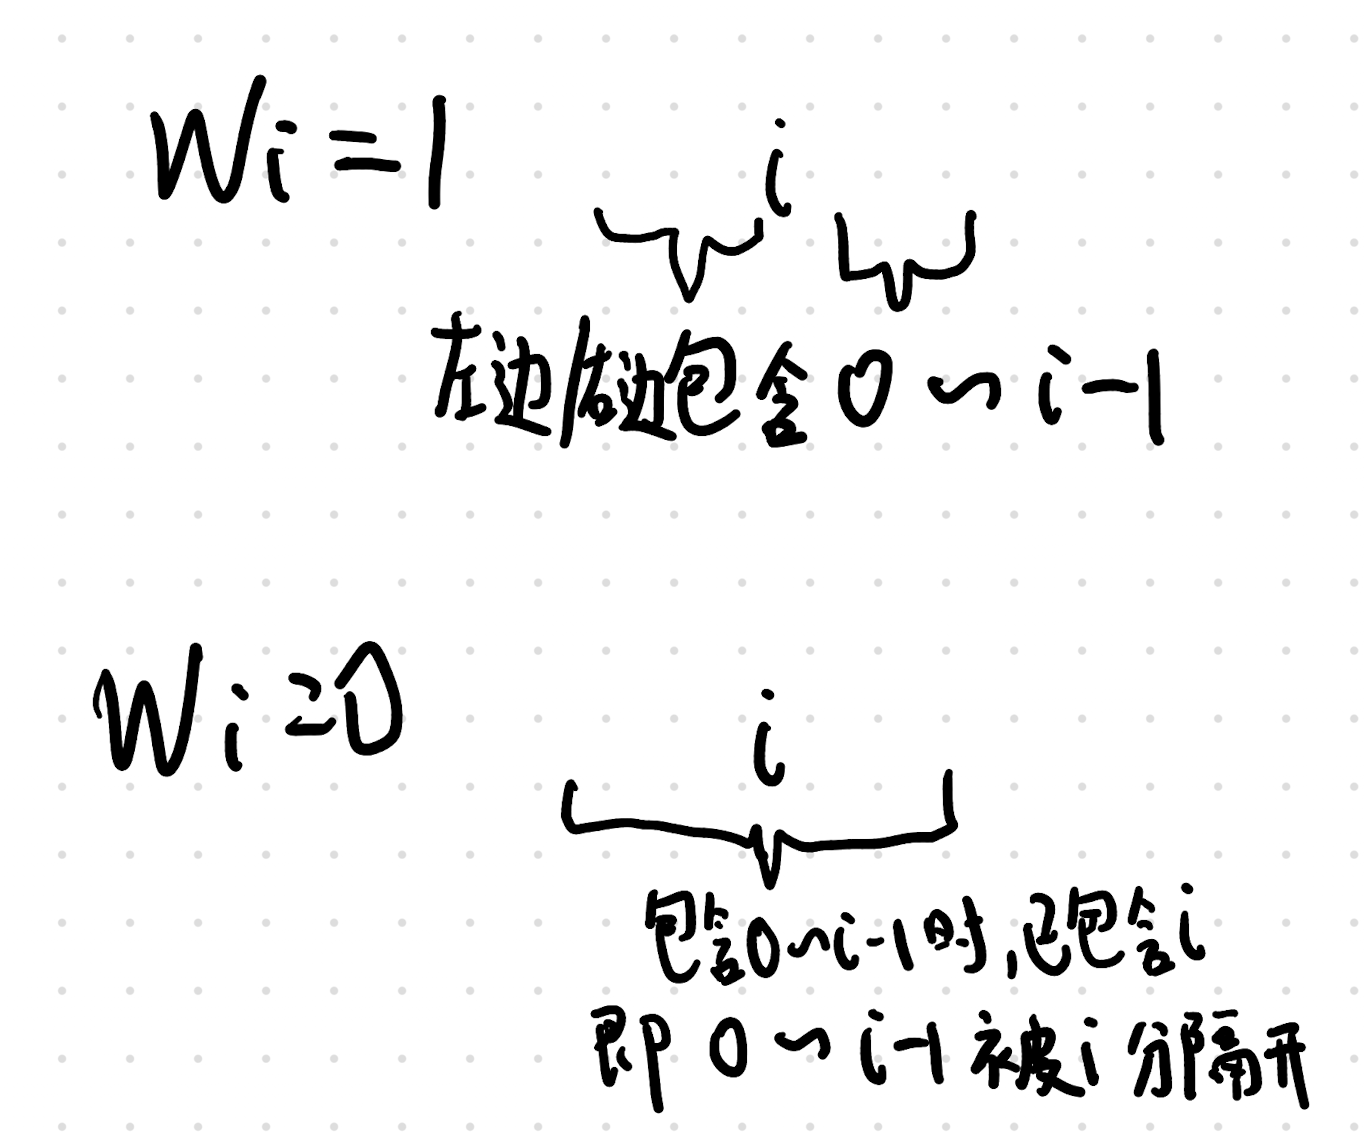 Wi=1
i
左边/右边包含0~i-1
Wi=0
i
包含0~i-1时,已包含i
即0~i-1被i分隔开